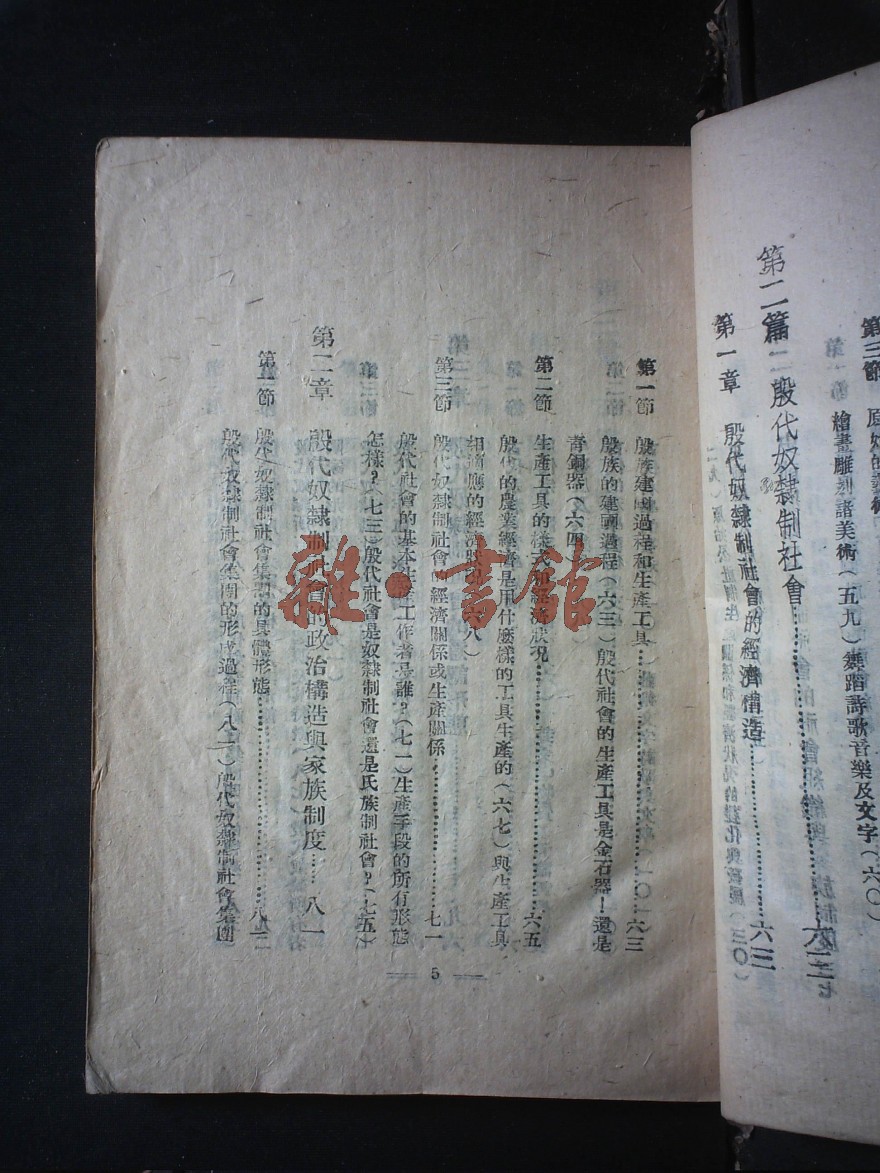 第三節
繪畫雕刻諸美術(五九)舞蹈詩歌音樂及文字(六〇)
第二篇 殷代奴隸制社會……六三
第一章 殷代奴隸制社會的經濟構造……六三
第一節 殷族建國過程和生產工具……六三
殷族的建國過程(六三)殷代社會的生產工具是金石器!還是
青銅器(六四)
第二節 生產工具的樣式和經濟狀況……六五
殷代的農業經濟是用什麼樣的工具生產的(六七)與生產工具
相適應的經濟狀況(六八)
第三節 殷代奴隸制社會的經濟關係或生產關係……七一
殷代社會的基本生產工作者是誰?(七一)生產手段的所有形態
怎樣?(七三)殷代社會是奴隸制社會還是氏族制社會?(七五)
第二章 殷代奴隸制社會的政治構造與家族制度……八一
第一節 殷代奴隸制社會集團的具體形態……八二
殷代奴隸制社會集團的形成過程(八二)殷代奴隸制社會集團
5
雜·書館